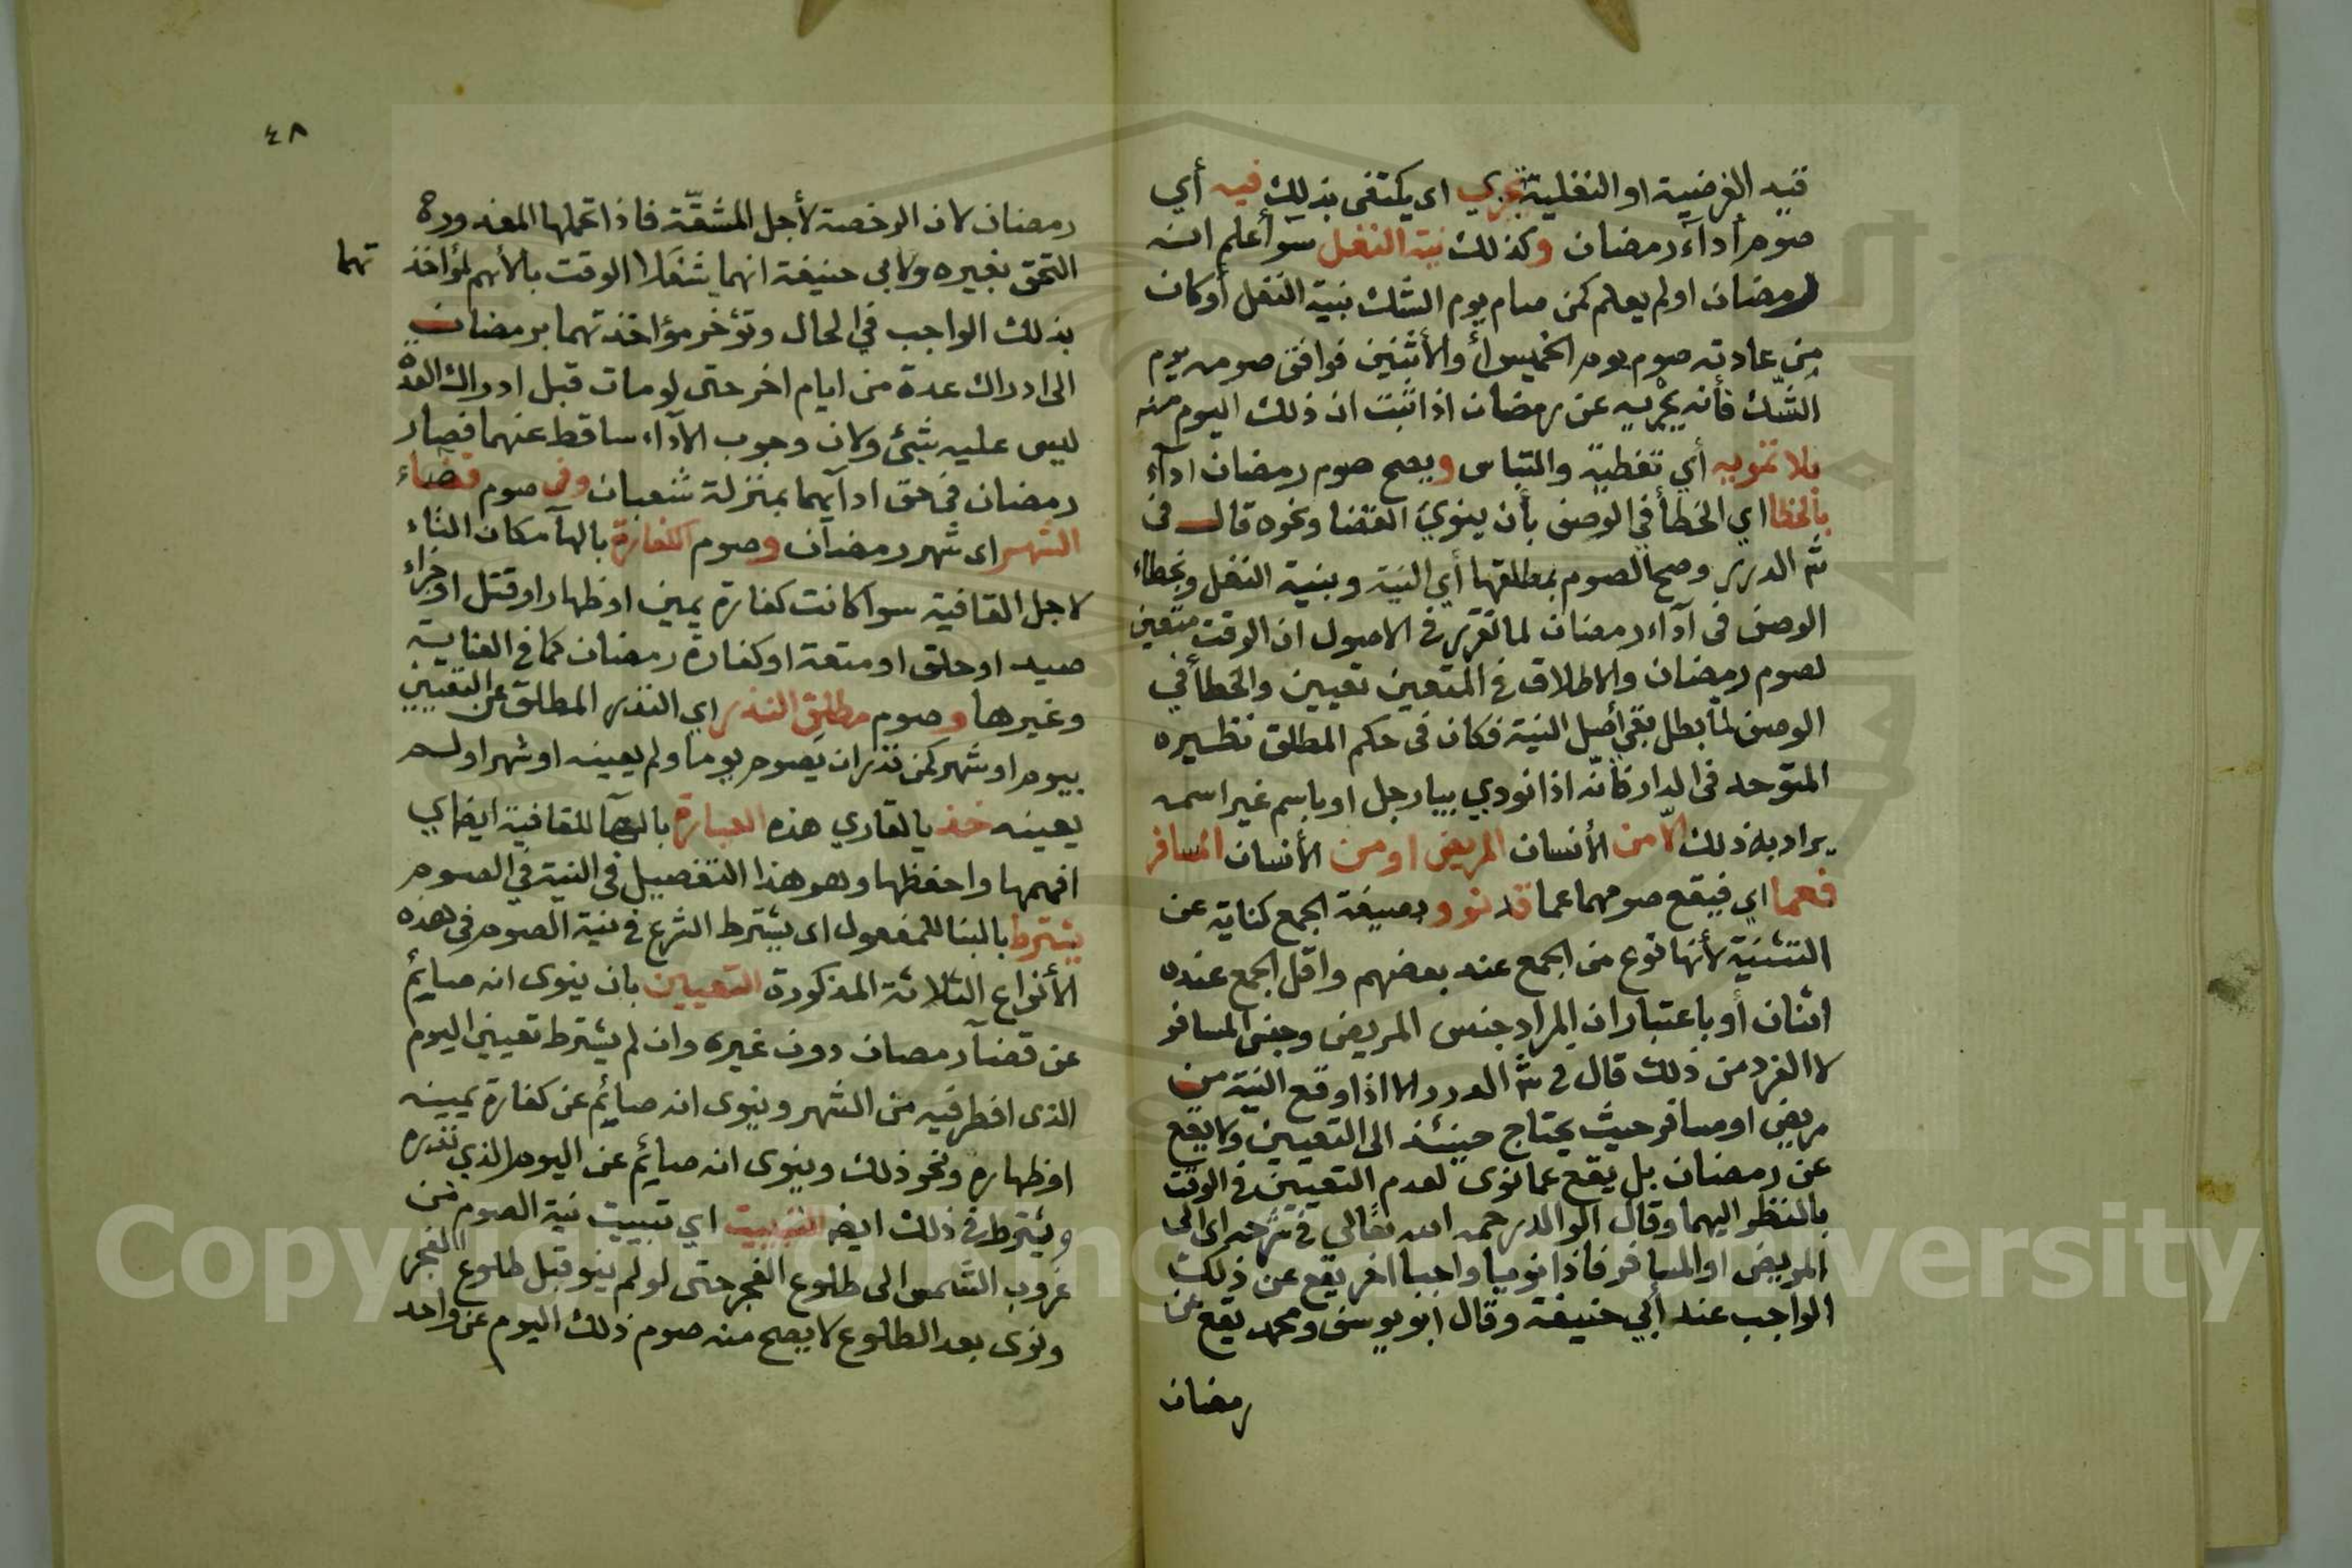 قيد الفرضية او النفلية تجزي اى يكتفى بذلك فيه أي
صوم أدآء رمضان وكذلك نية النفل سوآ أعلم انه
رمضان او لم يعلم كمن صام يوم الشك بنية النفل أو كان
من عادته صوم يوم الخميس أو الأثنين فوافق صومه يوم
الشّك فأنه يجزيه عن رمضان اذا ثبت ان ذلك اليوم منه
بلا تمويه أي تغطية والتباس ويصح صوم رمضان ادآء
بالخطا اي الخطأ في الوصف بأن ينوي القضا ونحوه قال في
شرح الدرر وصح الصوم بمطلقها أي النية وبنية النفل وبخطاء
الوصف فى آداء رمضان لما تقرر في الاصول ان الوقت متعين
لصوم رمضان والاطلاق في المتعين تعيين والخطأ في
الوصف لما بطل بقي أصل النية فكان فى حكم المطلق نظيره
المتوحد فى الدار فأنّه اذا نودي بيا رجل او باسم غير اسمه
يراد به ذلك الّا من الأنسان المريض او من الأنسان المسافر
فعما اي فيقع صومهما عما قد نووا بصيغة الجمع كناية عن
التثنية لأنها نوع من الجمع عند بعضهم واقل الجمع عنده
اثنان أو باعتبار ان المراد جنس المريض وجنس المسافر
لا الفرد من ذلك قال في شرح الدرر الا اذا وقع النية من
مريض او مسافر حيث يحتاج حينئذ الى التعيين ولا يقع
عن رمضان بل يقع عما نوى لعدم التعيين في الوقت
بالنظر اليهما وقال الوالد رحمه الله تعالى في شرحه اى الى
المريض او المسافر فاذا نويا واجبا اخر يقع عن ذلك
الواجب عند أبي حنيفة وقال ابو يوسف ومحمد يقع عن
رمضان
٤٨
رمضان لان الرخصة لأجل المشقّة فاذا تحملها المعذور
التحق بغيره ولابى حنيفة انهما شغلا الوقت بالأهم لمؤاخذ تهما
بذلك الواجب في الحال وتؤخر مؤاخذتهما برمضان
الى ادراك عدة من ايام اخر حتى لو مات قبل ادراك العدة
ليس عليه شئ ولان وجوب الآداء ساقط عنهما فصار
رمضان فى حق ادآيهما بمنزلة شعبان وفي صوم قضاء
الشهر اى شهر رمضان وصوم الكفارة بالهآ مكان التاء
لاجل القافية سوا كانت كفارة يمين او ظهار او قتل او جزاء
صيد او حلق او متعة او كفارة رمضان كما في العناية
وغيرها وصوم مطلق النذر اي النذر المطلق عن التعيين
بيوم او شهر كمن نذر ان يصوم يوما ولم يعينه او شهرا ولم
يعينه خذ يا لقاري هذه العبارة بالهآ للقافية ايضا اي
افهمها واحفظها وهو هذا التفصيل فى النية في الصوم
يشترط بالبنا للمفعول اى يشترط الشرع في نية الصوم فى هذه
الأنواع الثلاثة المذكورة التعيين بان ينوى انه صايم
عن قضآ رمضان دون غيره وان لم يشترط تعيين اليوم
الذى افطر فيه من الشهر وينوى انه صايم عن كفارة يمينه
او ظهاره ونحو ذلك وينوى انه صايم عن اليوم الذي نذره
ويشترط في ذلك ايضا التبييت اي تبييت نية الصوم من
غروب الشمس الى طلوع الفجر حتى لو لم ينو قبل طلوع الفجر
ونوى بعد الطلوع لا يصح منه صوم ذلك اليوم عن واحد
Copyright © King Saud University